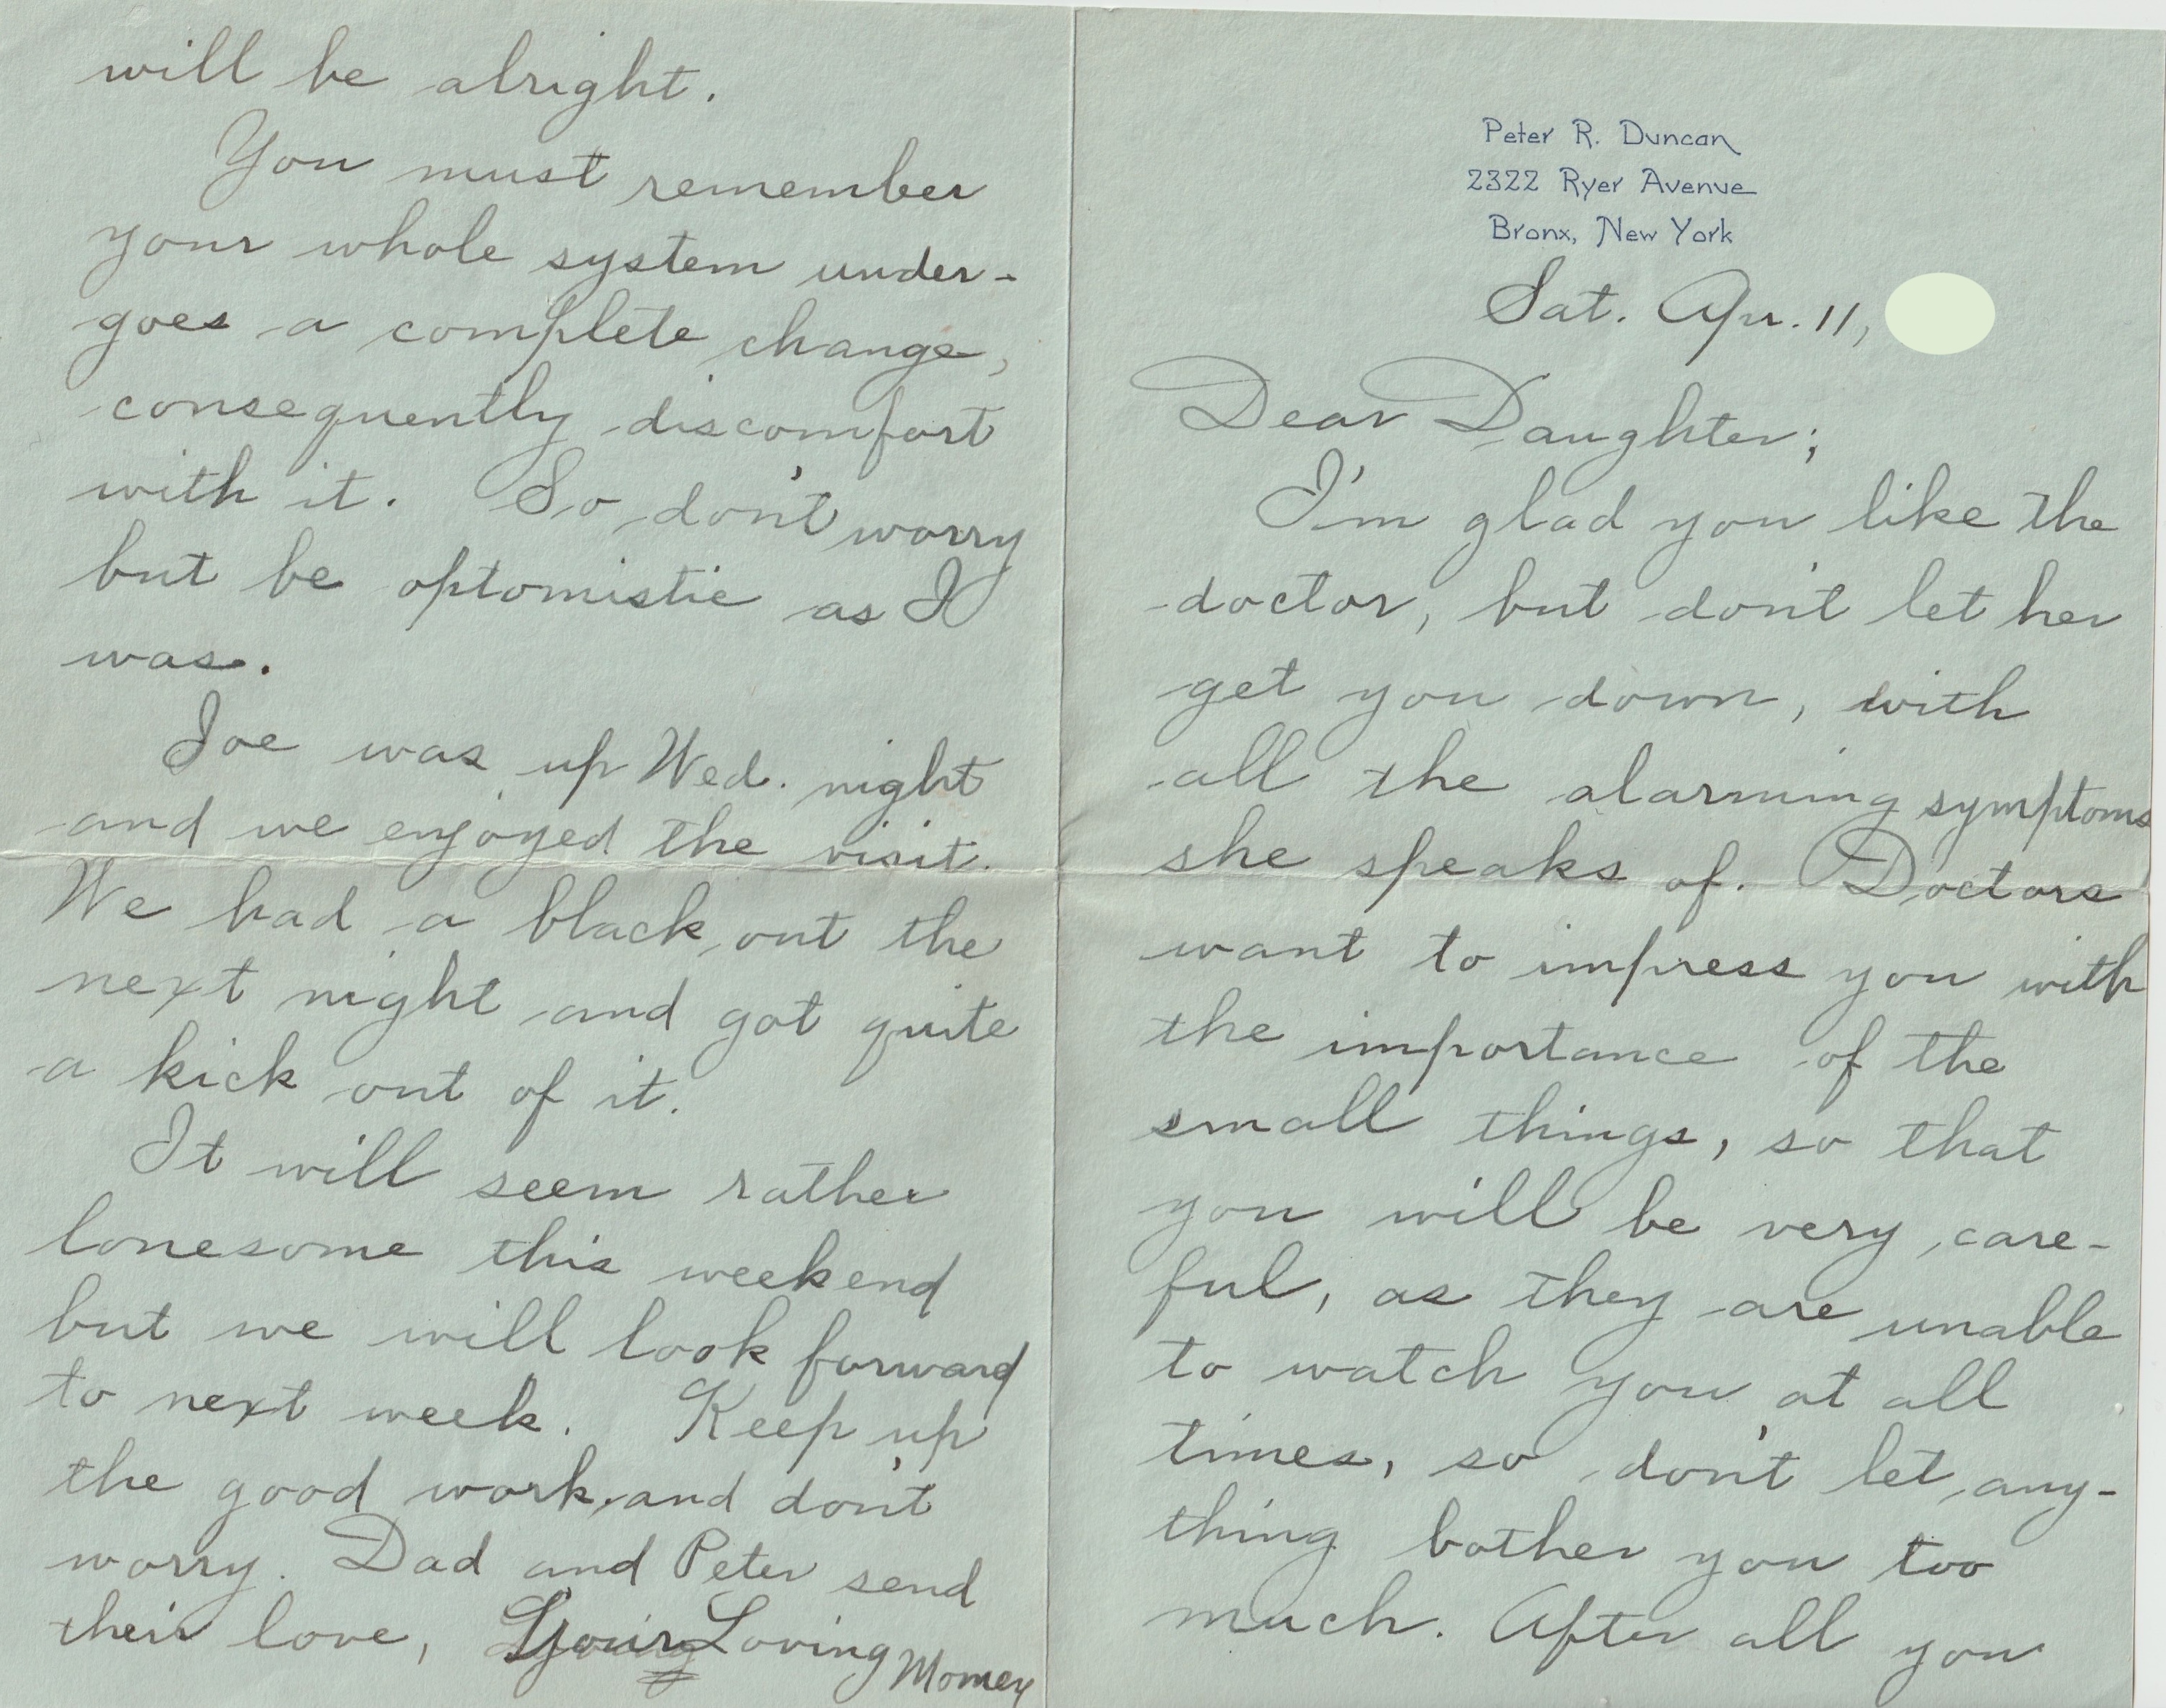 Peter R. Duncan
2322 Ryer Avenue
Bronx, New York
Sat. Apr. 11,
Dear Daughter;
I'm glad you like the
doctor, but don't let her
get you down, with
all the alarming symptoms
she speaks of. Doctors
want to impress you with
the importance of the
small things, so that
you will be very care-
ful, as they are unable
to watch you at all
times, so don't let any-
thing bother you too
much. After all you
will be alright.
You must remember
your whole system under-
goes a complete change,
consequently discomfort
with it. So don't worry
but be optomistic as I
was.
Joe was up Wed. night
and we enjoyed the visit.
We had a black out the
next night and got quite
a kick out of it.
It will seem rather
lonesome this weekend
but we will look forward
to next week. Keep up
the good work, and don't
worry. Dad and Peter send
their love, Your Loving